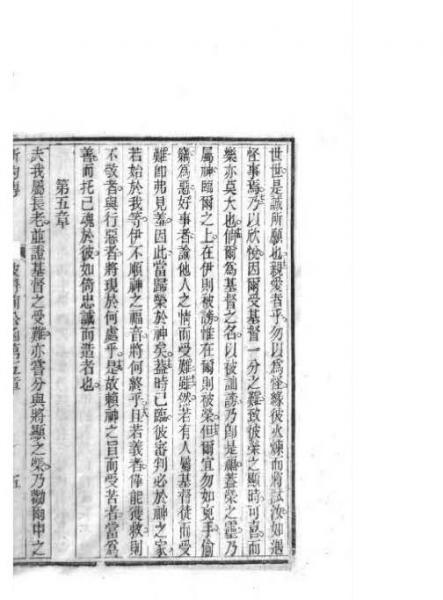 世世是誠所願也親愛者乎勿以爲怪緣彼火煉而將試汝如遇
怪事焉乃以欣悅因爾受基督一分之難致彼榮之顯時可喜而
樂亦莫大也倘爾爲基督之名以被訕謗乃卽是福蓋榮之靈乃
屬神臨爾之上在伊則被謗惟在爾則被榮但爾宜勿如兇手偷
竊爲惡好事者諭他人之情而受難雖然若有人屬基督徒而受
難卽弗見羞因此當歸榮於神矣蓋時已臨彼審判必於神之家
若始於我等伊不順神之福音將何終乎且若義者僅能獲救則
不敬者與行惡者將現於何處乎是故賴神之旨而受苦者當爲
善而托己魂於彼如倚忠誠而造者也
第五章
夫我屬長老並證基督之受難亦當分與將顯之榮乃勸爾中之